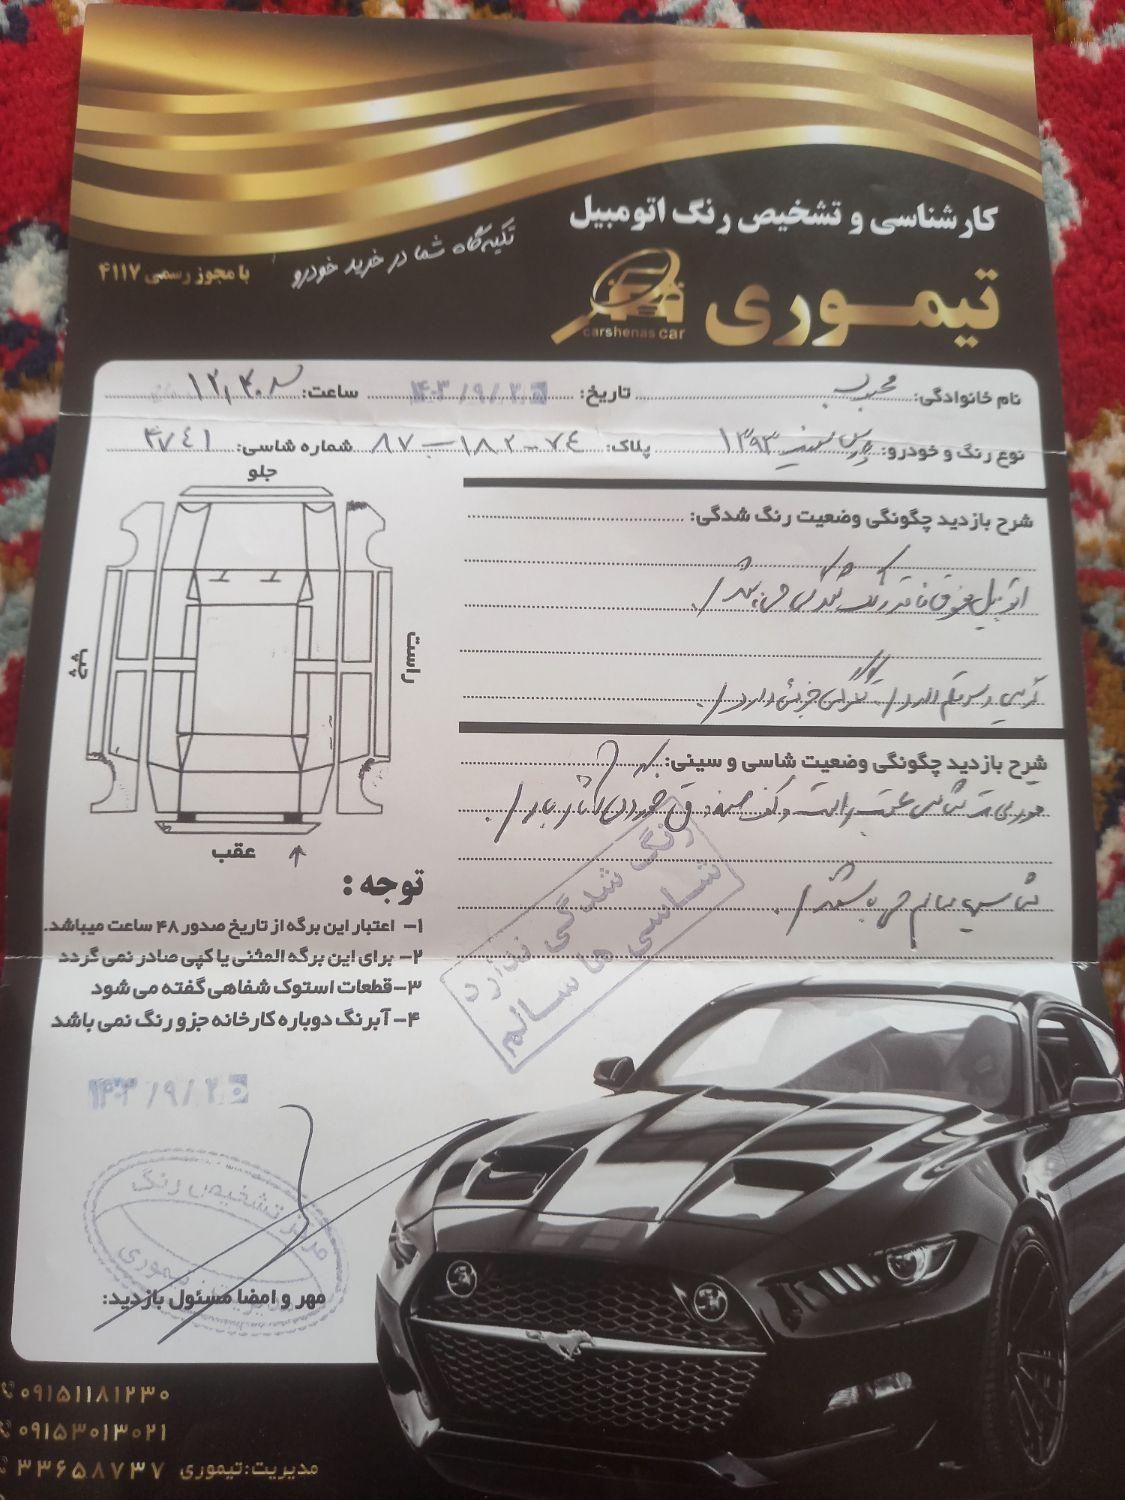 کارشناسی و تشخیص رنگ اتومبیل
تیموری
carshenas car
تکیه‌گاه شما در خرید خودرو
با مجوز رسمی ۴۱۱۷
نام خانوادگی: محبوب تاریخ: ۱۴۰۳/۹/۲۵ ساعت: ۱۲,۴۰
نوع رنگ و خودرو: پارس سفید ۱۳۹۳ پلاک: ۷۴-۱۸۲ ب ۸۷ شماره شاسی: ۴۷۴۱
جلو
راست
چپ
عقب
شرح بازدید چگونگی وضعیت رنگ شدگی:
اتومبیل فوق فاقد رنگ شدگی می باشد/.
دارد/.
شرح بازدید چگونگی وضعیت شاسی و سینی:
عقب راست و کف صندوق خوردگی آثار دارد/.
شاسی سالم می باشند/.
رنگ شدگی ندارد
شاسی ها سالم
توجه:
۱- اعتبار این برگه از تاریخ صدور ۴۸ ساعت میباشد.
۲- برای این برگه المثنی یا کپی صادر نمی گردد
۳-قطعات استوک شفاهی گفته می شود
۴- آبرنگ دوباره کارخانه جزو رنگ نمی باشد
۱۴۰۳/۹/۲۵
مرکز تشخیص رنگ
تیموری
مهر و امضا مسئول بازدید:
۰۹۱۵۱۱۸۱۲۳۰
۰۹۱۵۳۰۱۳۰۲۱
مدیریت: تیموری ۳۳۶۵۸۷۳۷